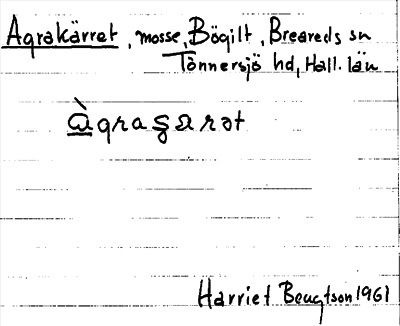 Agrakärret, mosse, Bögilt, Breareds sn
Tönnersjö hd, Hall. län
Harriet Bengtson 1961